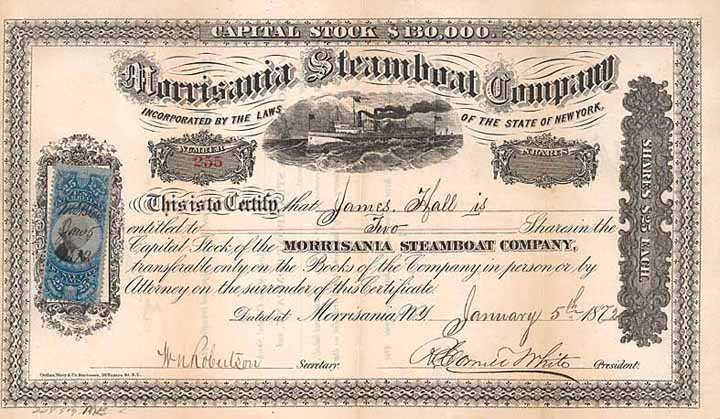 CAPITAL STOCK $130,000.
Morrisania Steamboat Company
INCORPORATED BY THE LAWS OF THE STATE OF NEW YORK.
NUMBER
255
SHARES
This is to Certify, that James Hall is
entitled to Two Shares in the
Capital Stock of the MORRISANIA STEAMBOAT COMPANY,
transferable only on the Books of the Company in person or by
Attorney on the surrender of this Certificate.
Dated at Morrisania, N.Y. January 5th 1872
Wm Robertson Secretary. White President.
SHARES $25 EACH